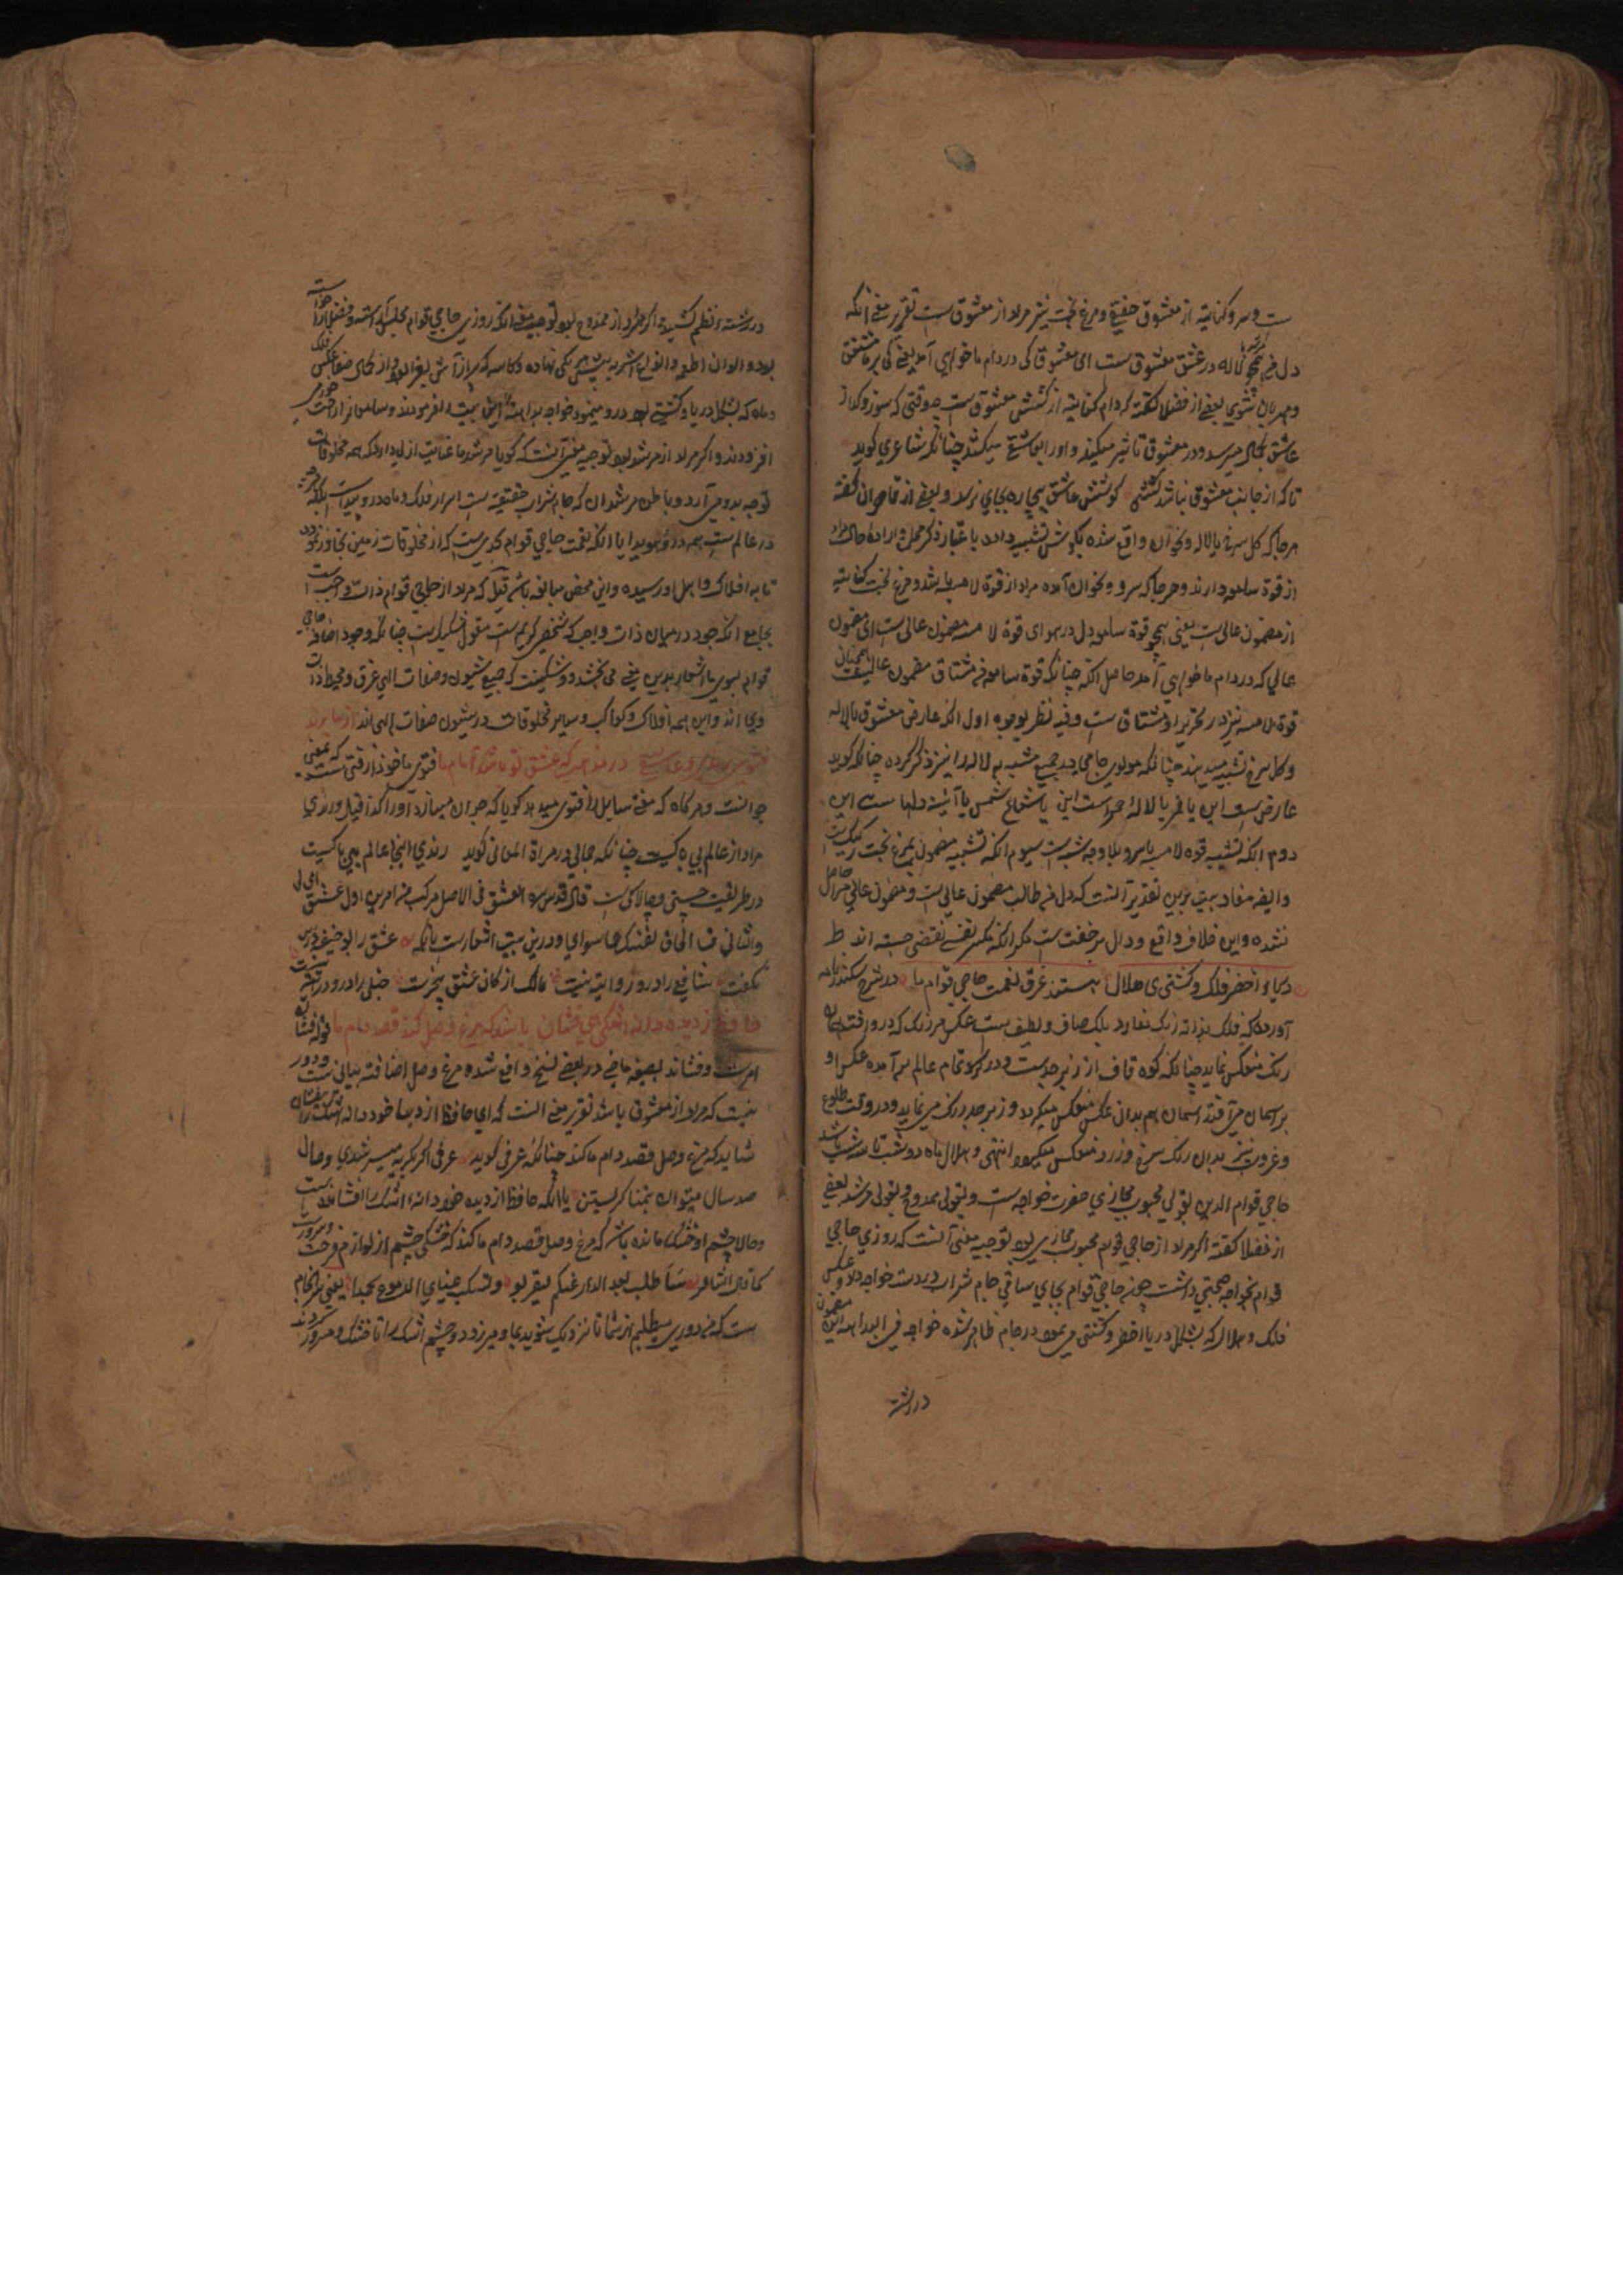 ست و سرو کنایه از معشوق حقیقی و مرغ بخت نیز مراد از معشوق ست تقریر معنی انکه
دل من همچو لاله در عشق معشوق ست ای معشوقا کی در دام ما خواهی آمد یعنی کی بر ما مشفق
و مهربان شوی بعضی از فضلا گفته که دام کنایه از کشش معشوق ست چه وقتی که سوز و گداز
عاشق بکمال میرسد در معشوق تاثیر میکند و او را می کشد چنانکه شاعری گوید
تا که از جانب معشوق نباشد کششی کوشش عاشق بیچاره بجای نرسد و بعضی از گفته
هرجا که گل سرخ یا لاله و نحو ان واقع شده بگوش تشبیه داده باعتبار ذکر محل و اراده حال مراد
از قوة سامعه دارند و هرجا که سرو و نحو ان آمده مراد از قوة لامسه باشد و مرغ بخت کنایه
از مضمون عالی ست یعنی همچو قوة سامعه دل در هوای قوة لامسه مضمون عالی ست ای مضمون
عالی که در دام ما خواهی آمد حاصل انکه چنانکه قوة سامعه من مشتاق مضمون عالیست همچنان
قوة لامسه نیز در تحریر او مشتاق ست و فیه نظر بوجوه اول انکه عارض معشوق با لاله
و گل سرخ تشبیه میدهند چنانکه مولوی جامی جمیع مشبه به لاله را نیز ذکر کرده چنانکه گوید
عارض ست این یا قمر یا لالهٔ حمراست این یا شعاع شمس یا آئینهٔ دلها ست این
دوم انکه تشبیه قوه لامسه با سرو بلا وجه شبه ست سیوم انکه تشبیه مضمون بمرغ بخت رکیک ست
و ایضا مفاد بیت برین تقدیر آنست که دل من طالب مضمون عالی ست و مضمون عالی مرا حاصل
نشده و این خلاف واقع و دال بر خفت ست مگر انکه کسر نفسی جسته اند ط
دریای اخضر فلک و کشتی هلال هستند غرق نعمت حاجی قوام ما در شرح سکندرنامه
آورده که فلک بذاته رنگ ندارد بلکه صاف و لطیف ست عکس هر رنگ که درو افتد همان
رنگ منعکس نماید چنانکه کوه قاف از زبرجد ست و در گرد تمام عالم بر آمده عکس او
بر اسمان می افتد اسمان هم بدان عکس منعکس میگردد و زبرجد رنگ می نماید و در وقت طلوع
و غروب نیز بدان رنگ سرخ و زرد منعکس میگردد انتهی و هلال ماه دو شب تا سه شب باشد
حاجی قوام الدین بقولی محبوب مجازی حضرت خواجه ست و بقولی ممدوح و بقولی مرشد بعضی
از فضلا گفته اگر مراد از حاجی قوام محبوب مجازی بود توجیه معنی آنست که روزی حاجی
قوام بخواجه صحبتی داشت چون حاجی قوام بجای ساقی جام شراب در دست خواجه داد و عکس
فلک و هلال که بشکل دریا اخضر و کشتی می نمود در جام ظاهر شده خواجه فی البدیهه این مضمون
در رشته
در رشتهٔ نظم کشید و اگر مراد از ممدوح بود توجیه معنی انکه روزی حاجی قوام مجلس آراسته و فضلا را خواسته
بود و الوان اطعمه و انواع اشربه پیش هر یکی نهاده و کاسه که پر از آش بغرا بود از کمال صفا عکس فلک
و ماه که بشکل دریا و کشتی بود درو مینمود خواجه بداهة این بیت فرمودند و سامعان را حیرت
افزودند و اگر مراد از مرشد بود توجیه معنی آنست که گویا مرشد ما عنایت ازلی دارد که همه مخلوقات
توجه بدو می آرد و باطن مرشدان که جام شراب حقیقت ست اسرار فلک و ماه درو پیداست بلکه هرچه
در عالم ست همه درو هویدا یا انکه نعمت حاجی قوام بحدی ست که از مخلوقات زمین تجاوز نموده
تا به افلاک و اهل او رسیده و این محض مبالغه باشد قیل که مراد از حاجی قوام ذات واجب ست
بجامع انکه جود در میان ذات واجب که شخص کریم ست مقول بتشکیک ست چنانکه وجود اضافه حاجی
قوام بسوی ما اشعار بدین معنی می بخشد و شک نیست که جمیع شیون و صفات الهی غرق و محیط ذات
وی اند و این همه افلاک و کواکب و سایر مخلوقات در شیون صفات الهی اند
در مذهب که عشق تو باشد امام ما فتوی ماخوذ از فتی ست که بمعنی
جوانست و هرگاه که مفتی سایل را فتوی میدهد گویا که جوان میسازد او را کذا قیل و رندی
مراد از عالم بی باکیست چنانکه جمالی در مراة المعانی گوید رندی اینجا عالم بی باکیست
در طریقت چستی و چالاکی ست قال قدس سره العشق فی الاصل مرکب من امرین اول عشق ای لی
و الثانی قنا الحاق لفندک عما سوای و درین بیت اشعار ست بانکه عشق را بو حنیفه درس
نگفت شافعی را درو روایت نیست مالک از کان عشق بیخبرست حنبلی را درو درایت نیست
حافظ ز دیده دانه اشکی همی فشان باشد که مرغ وصل کند قصد دام ما قوله فشان
امرست و فشاند بصیغه ماضی در بعضی نسخ واقع شده مرغ وصل اضافت بیانی ست و دور
نیست که مراد از معشوق باشد تقریر معنی انست که ای حافظ از دیدهٔ خود دانه اشک را بیفشان
شاید که مرغ وصل قصد دام ما کند چنانکه عرفی گوید عرفی اگر بگریه میسر شدی وصال
صد سال میتوان بتمنا گریستن یا انکه حافظ از دیده خود دانه اشک را افشانده ست
و حالا چشم او خشک مانده باشد که مرغ وصل قصد دام ما کند که خشکی چشم از لوازم فرحت و سرورست
کما قال الشاعر ساطلب بعد الدار عنکم لتقربوا و تسکب عینای الدموع لتجمدا یعنی
ست که من دوری میطلبم از شما تا نزدیک شوید بما و میریزد دو چشم اشک را تا خشک و مسرور گردند